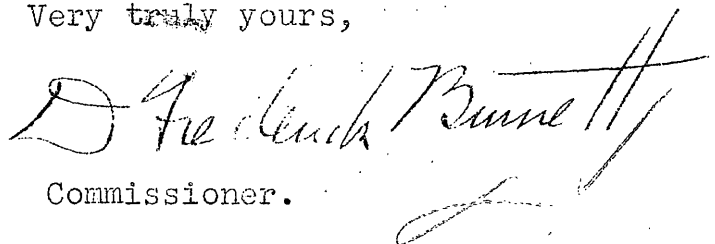 Very truly yours,
D Frederick Burnett
Commissioner.